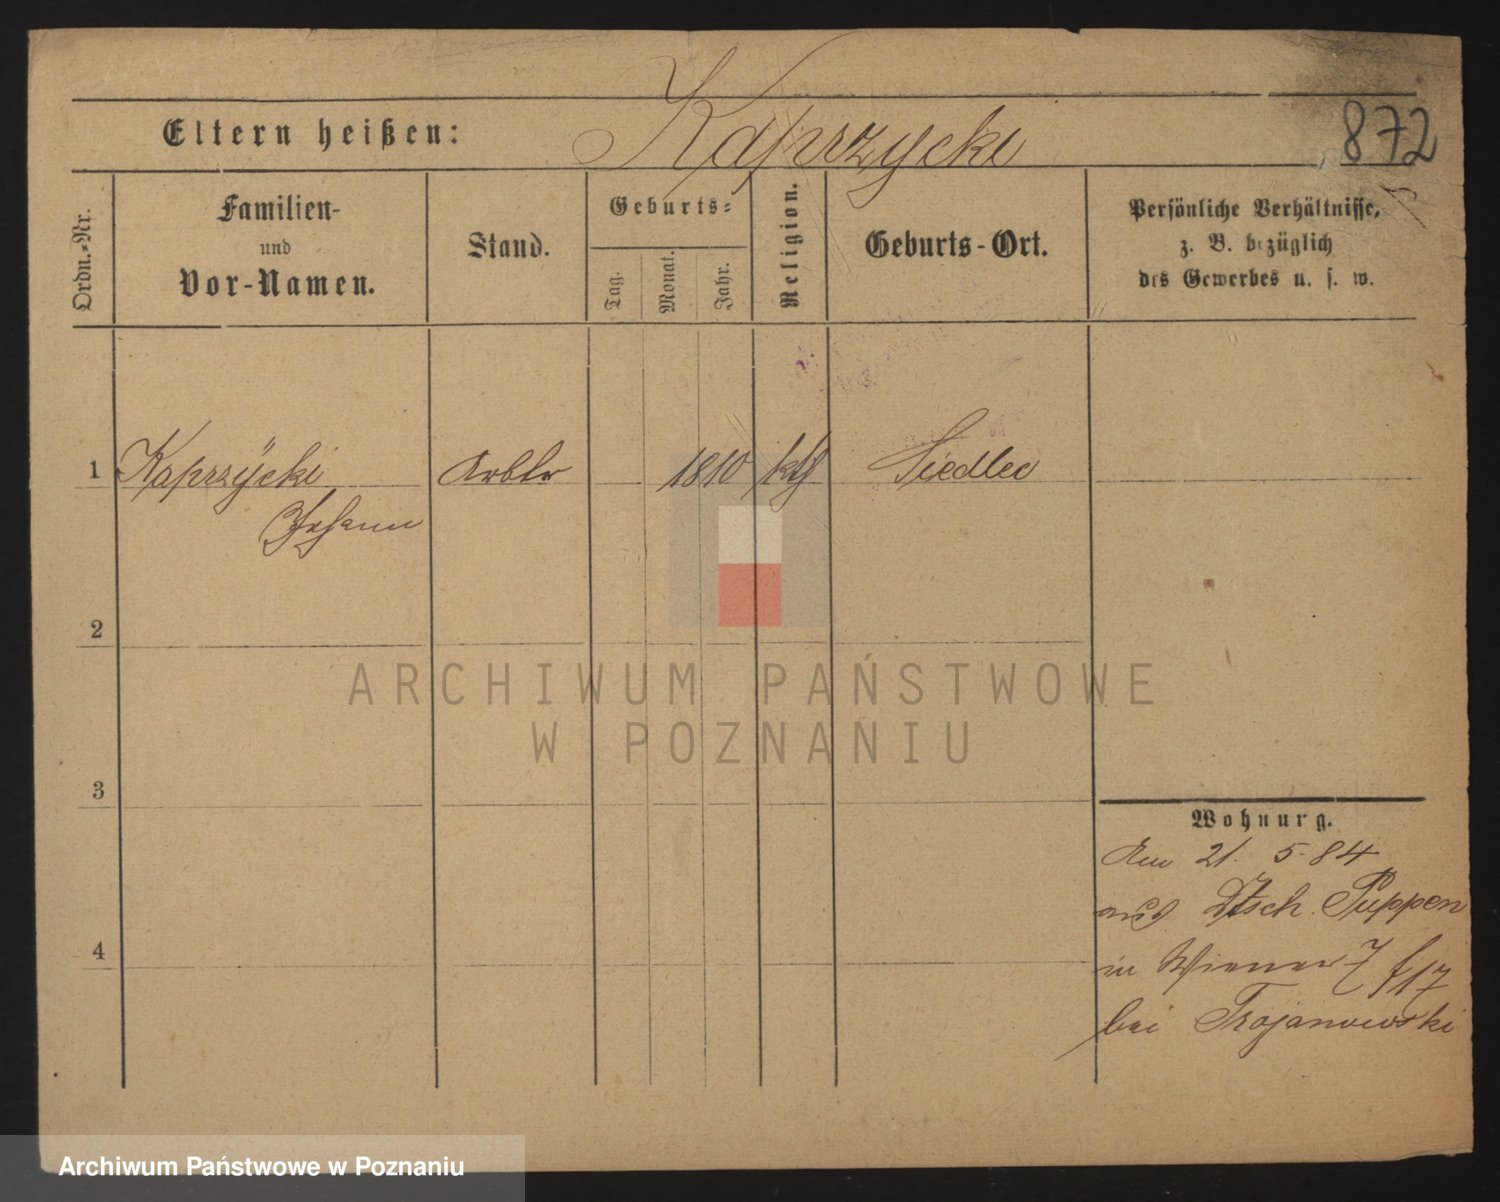 Kaprzycki
Eltern heißen:
872
Ordn.-Nr.
Familien-
und
Vor-Namen.
Stand.
Geburts-
Tag.
Monat.
Jahr.
Religion.
Geburts-Ort.
Persönliche Verhältnisse,
z. B. bezüglich
des Gewerbes u. s. w.
1 Kaprzycki Arbtr 1810 kth Siedlec
Johann
2
3
4
Wohnung.
Am 21. 5. 84
aus Dtsch. Puppen
in Wiener 7
bei Trojanowski
ARCHIWUM PAŃSTWOWE
W POZNANIU
Archiwum Państwowe w Poznaniu